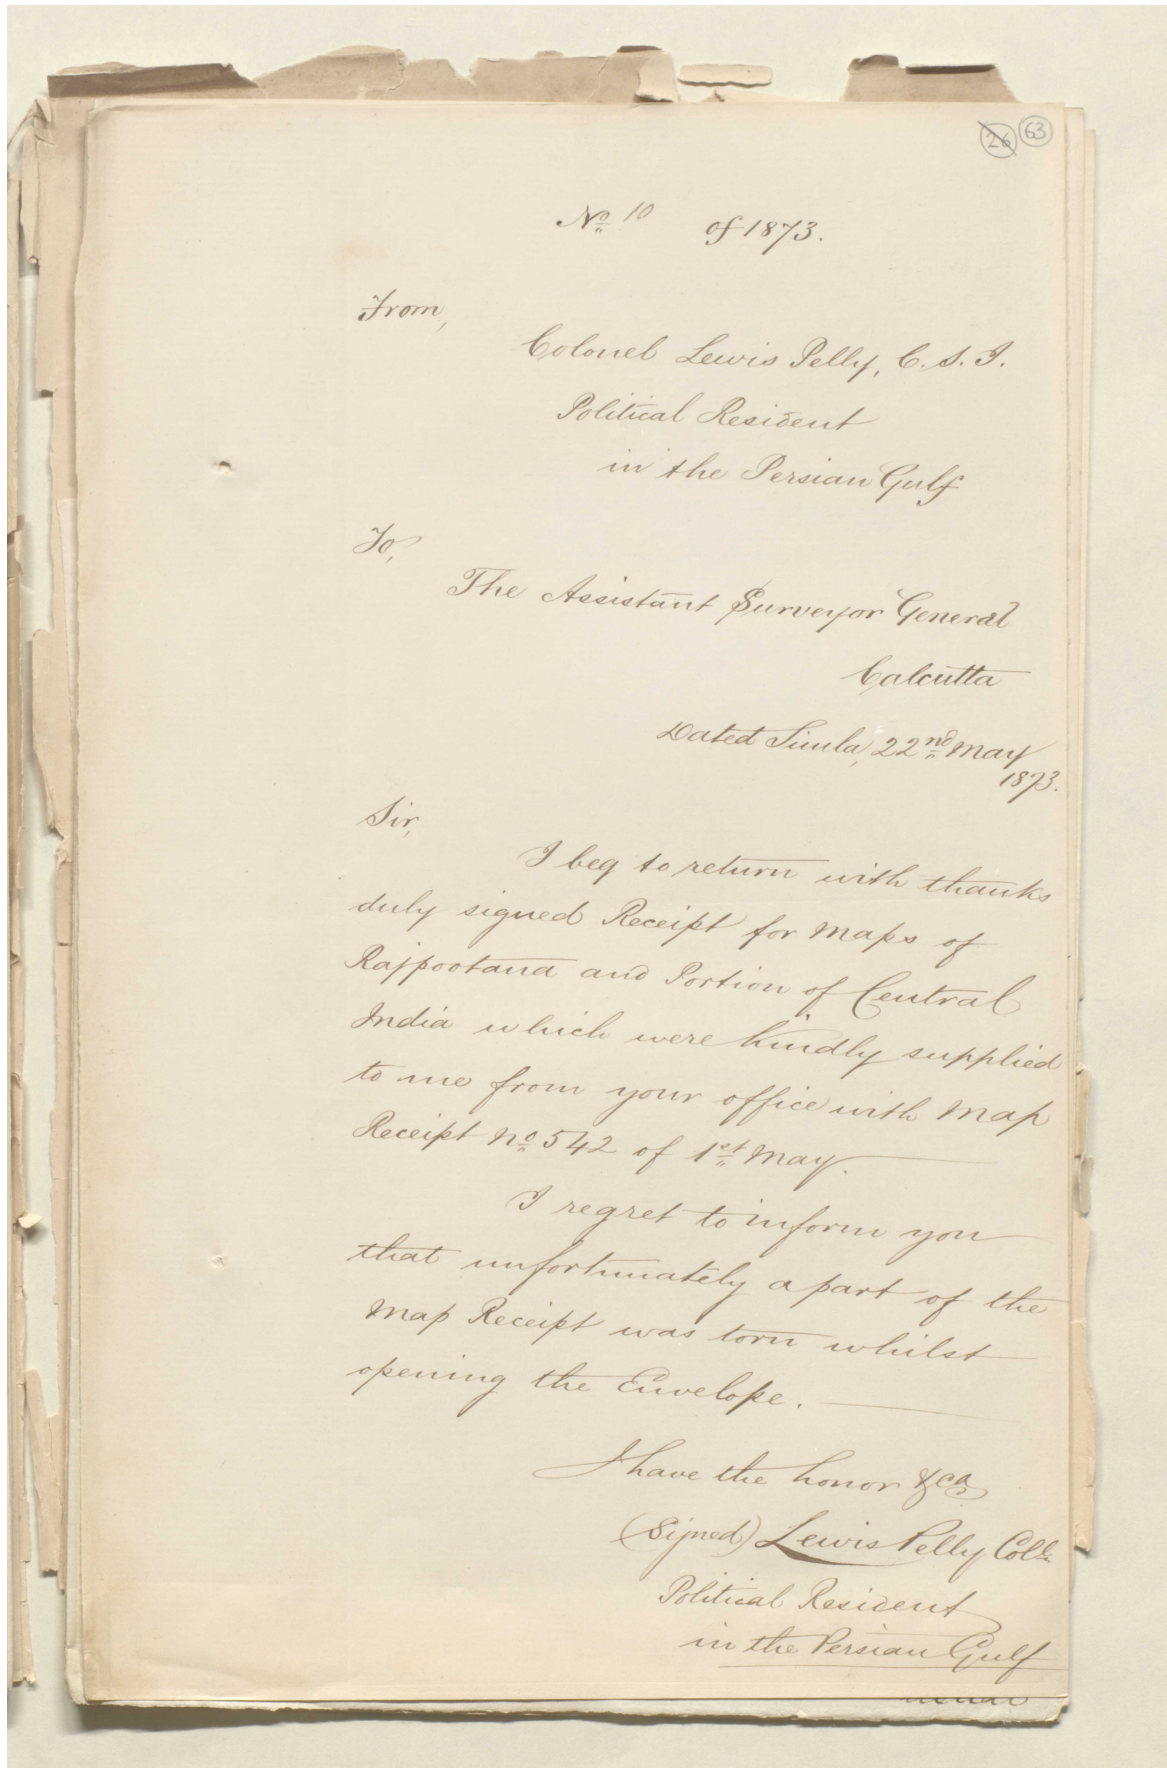 26 63
No 10 of 1873.
From,
Colonel Lewis Pelly, C. S. I.
Political Resident
in the Persian Gulf
To,
The Assistant Surveyor General
Calcutta
Dated Simla, 22nd May
1873.
Sir,
I beg to return with thanks
duly signed Receipt for Maps of
Rajpootana and Portion of Central
India which were kindly supplied
to me from your office with Map
Receipt No 542 of 1st May.
I regret to inform you
that unfortunately a part of the
Map Receipt was torn whilst
opening the Envelope.
I have the honor &ca
(Signed) Lewis Pelly Coll
Political Resident
in the Persian Gulf